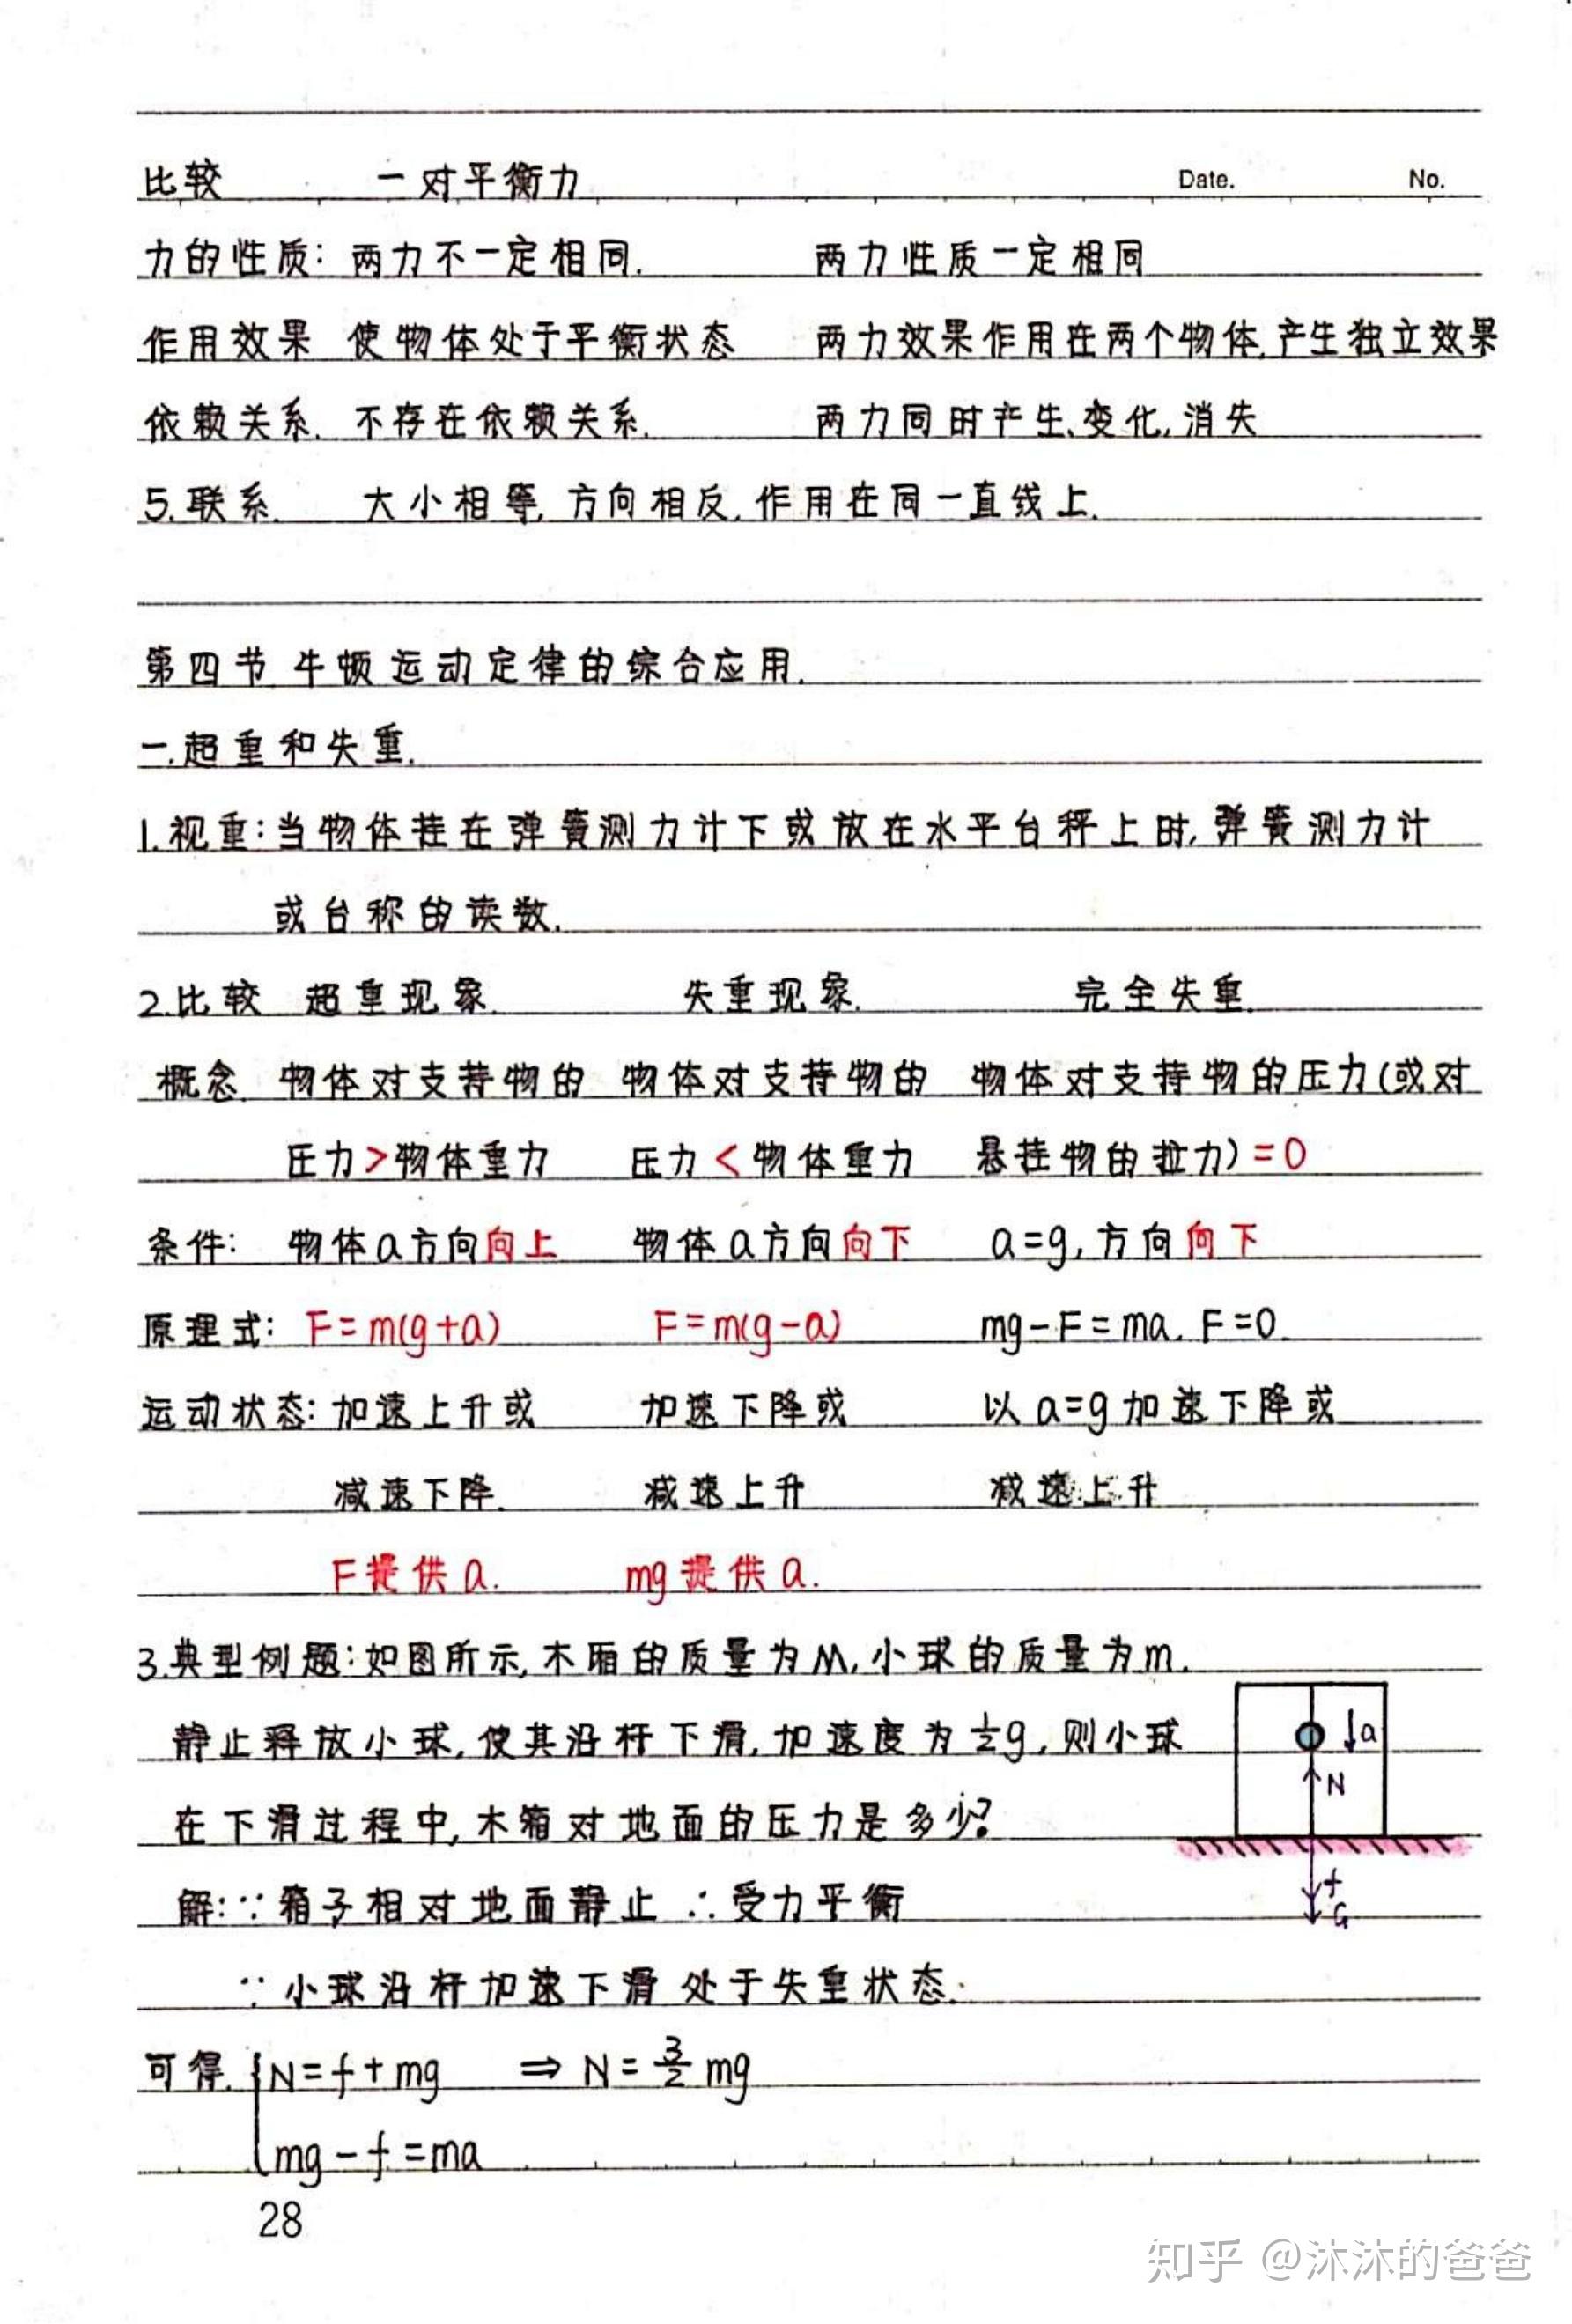 比较 一对平衡力 Date. No.
力的性质: 两力不一定相同. 两力性质一定相同
作用效果 使物体处于平衡状态 两力效果作用在两个物体,产生独立效果
依赖关系. 不存在依赖关系. 两力同时产生、变化,消失
5.联系. 大小相等,方向相反,作用在同一直线上.
第四节 牛顿运动定律的综合应用.
一.超重和失重.
1.视重:当物体挂在弹簧测力计下或放在水平台秤上时,弹簧测力计
或台称的读数.
2.比较 超重现象. 失重现象. 完全失重.
概念. 物体对支持物的 物体对支持物的 物体对支持物的压力(或对
压力>物体重力 压力<物体重力 悬挂物的拉力)=0
条件: 物体a方向向上 物体a方向向下 a=g,方向向下
原理式: F=m(g+a) F=m(g-a) mg-F=ma. F=0.
运动状态:加速上升或 加速下降或 以a=g加速下降或
减速下降. 减速上升 减速上升
F提供a. mg提供a.
3.典型例题:如图所示,木厢的质量为M,小球的质量为m.
静止释放小球,使其沿杆下滑,加速度为½g,则小球
a
在下滑过程中,木箱对地面的压力是多少?
N
解:∵箱子相对地面静止 ∴受力平衡
f
G
∵小球沿杆加速下滑 处于失重状态.
可得. {N=f+mg ⇒ N=3/2 mg
mg-f=ma
28
知乎 @沐沐的爸爸